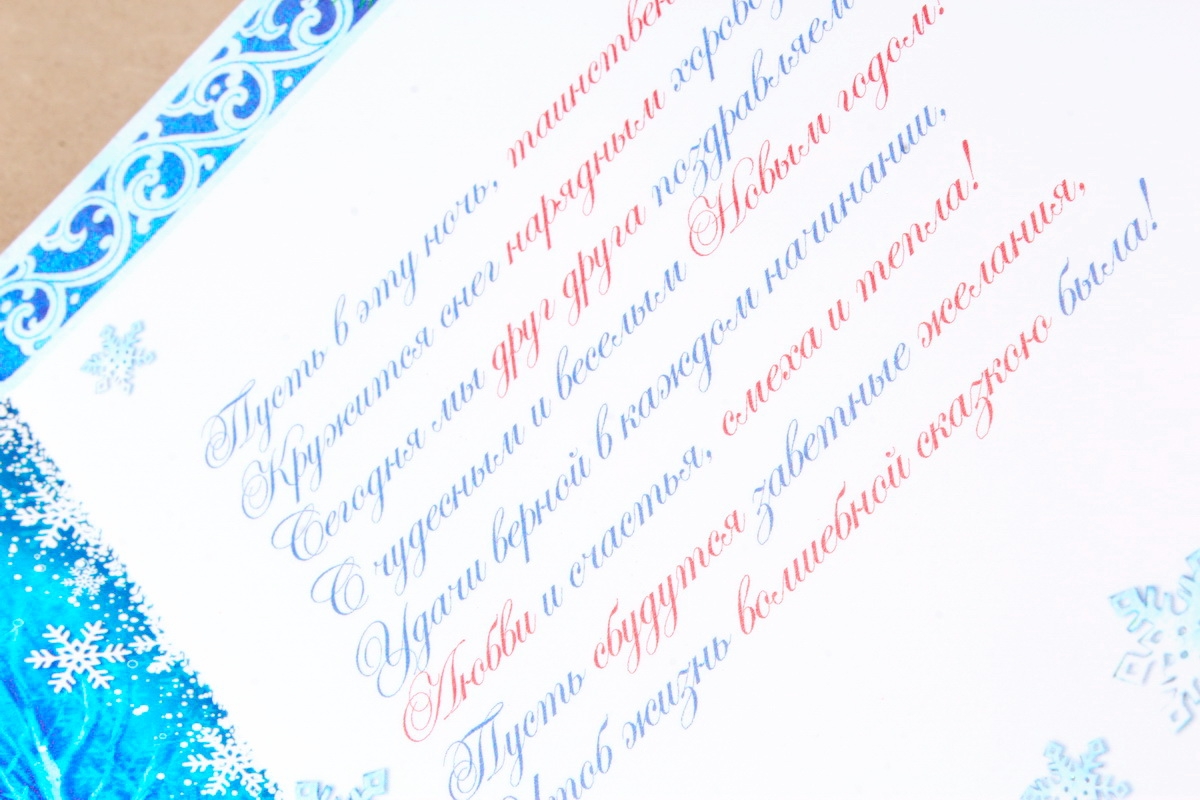 Пусть в эту ночь, таинствен
Кружится снег нарядным хоровод
Сегодня мы друг друга поздравляем
С чудесным и веселым Новым годом!
Удачи верной в каждом начинании,
Любви и счастья, смеха и тепла!
Пусть сбудутся заветные желания,
Чтоб жизнь волшебной сказкою была!